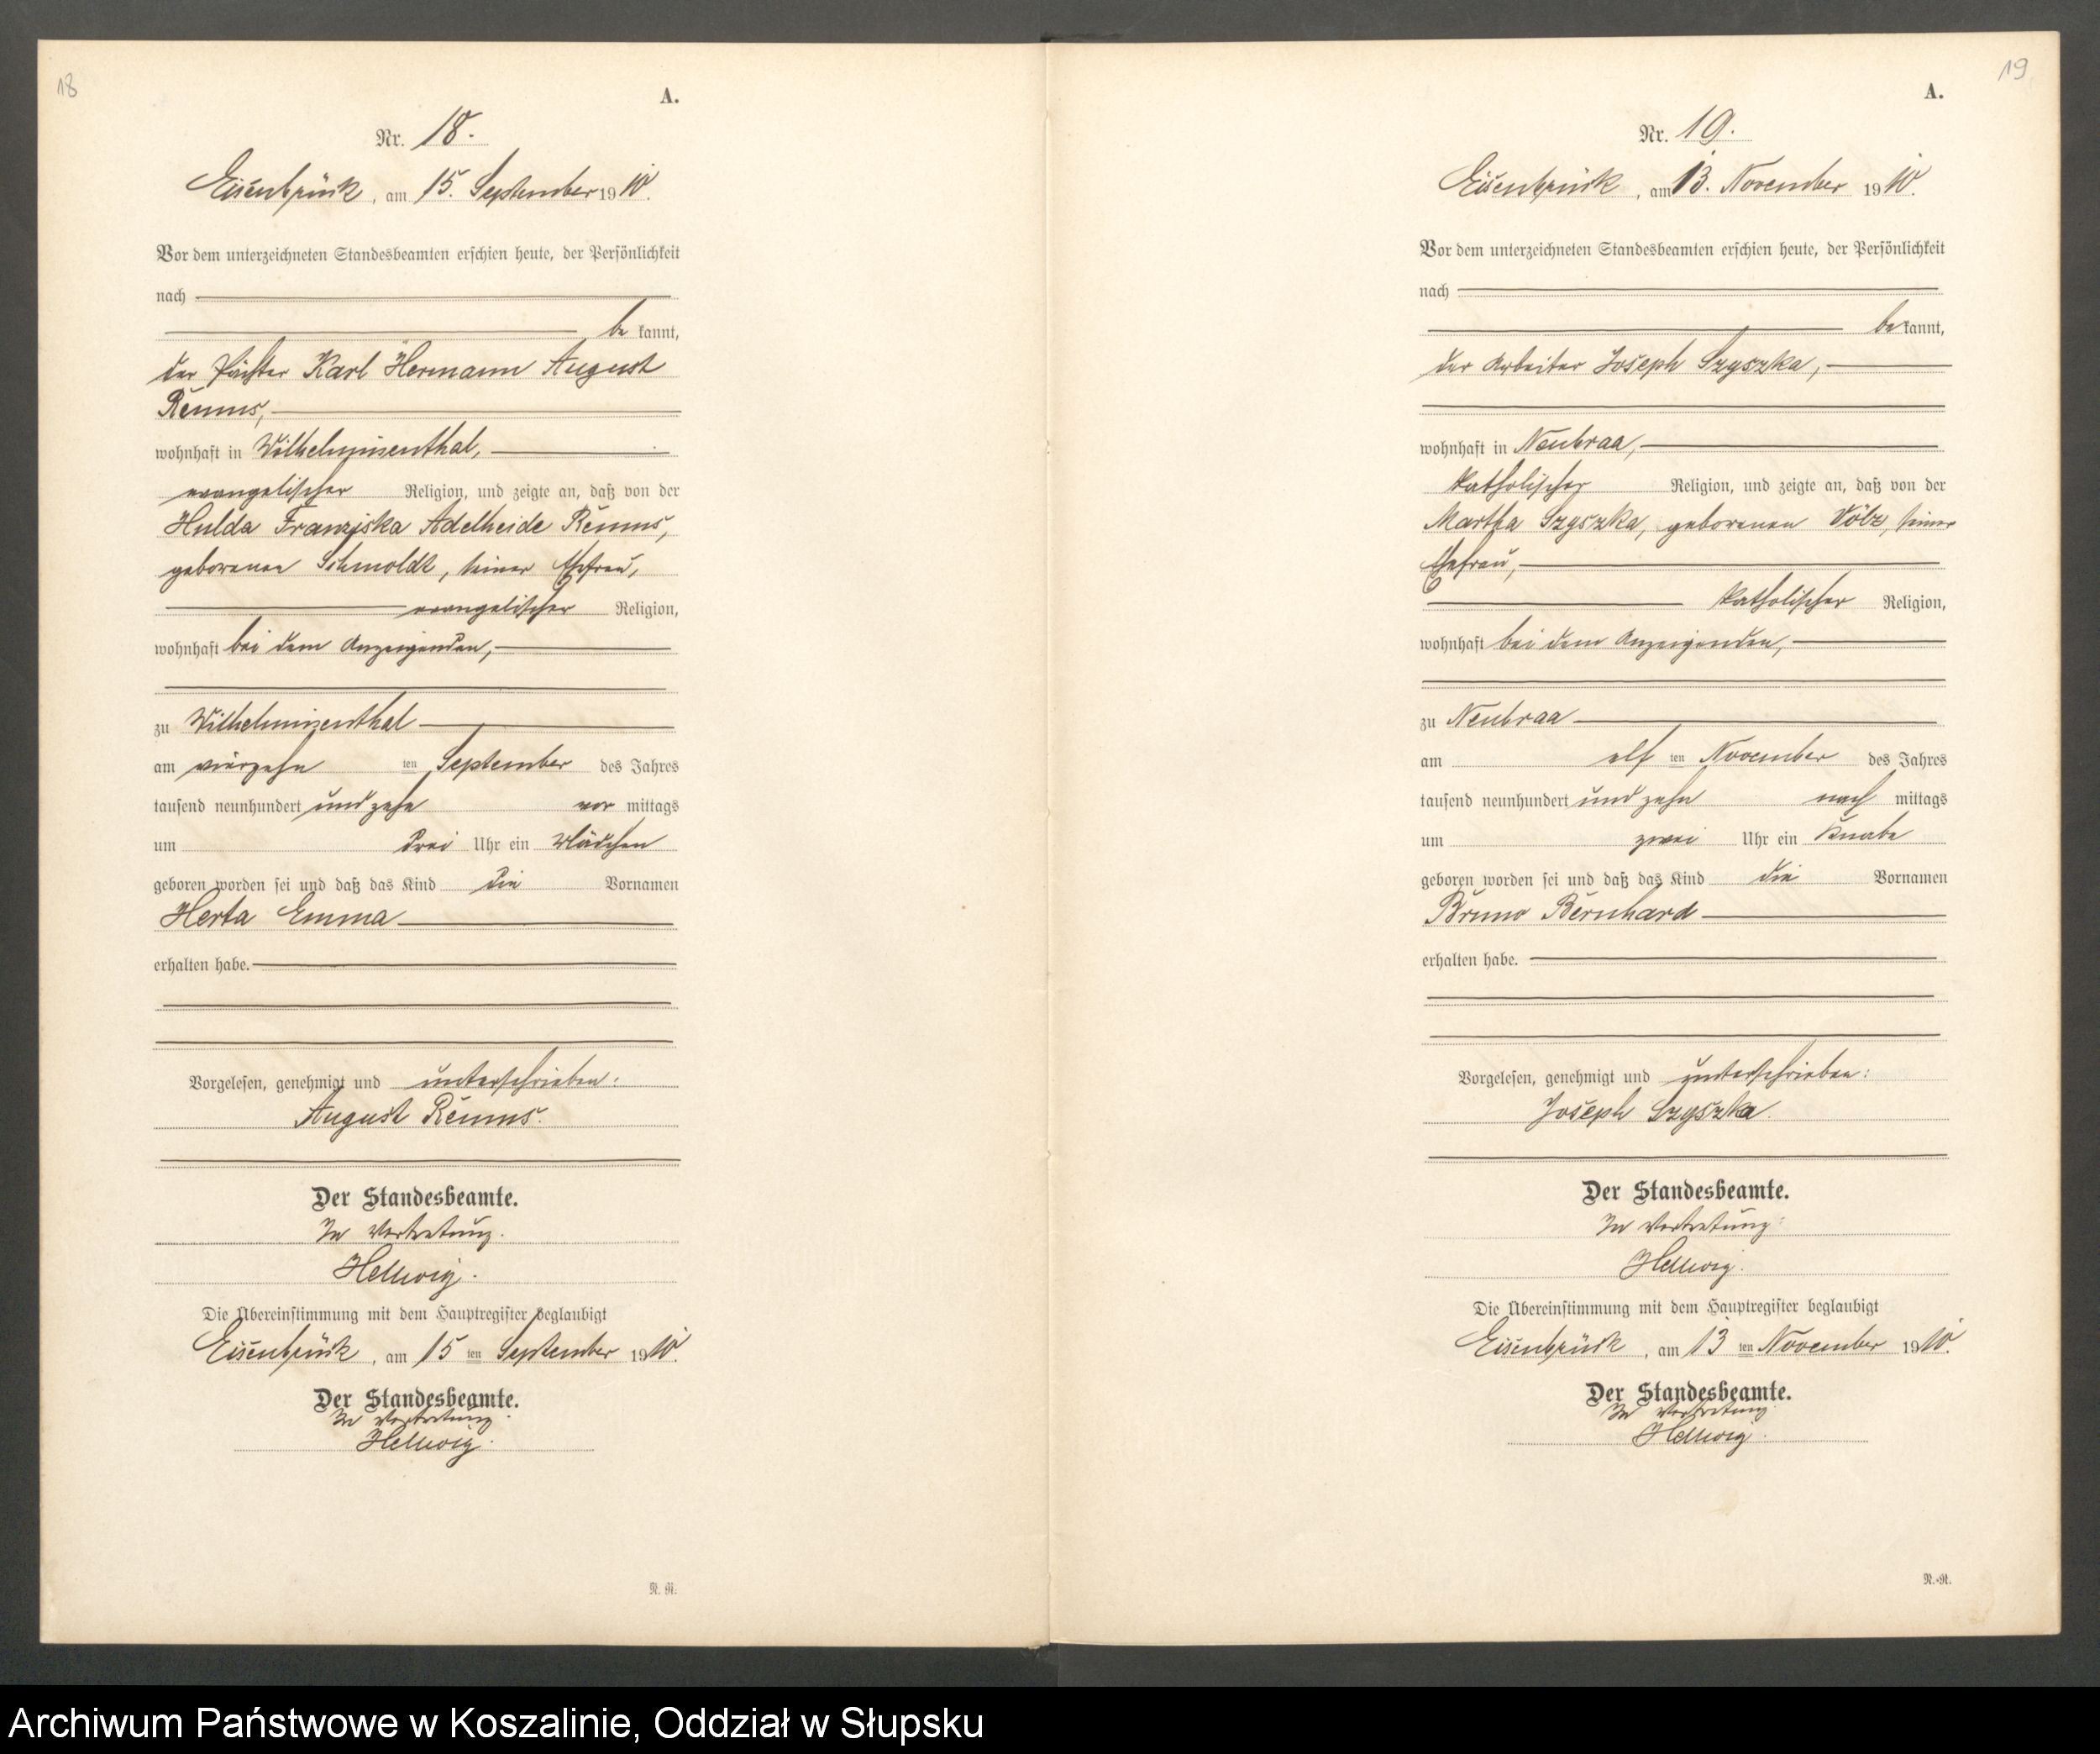 18
A.
Nr. 18.
Eisenbrück, am 15. September 1910.
Vor dem unterzeichneten Standesbeamten erschien heute, der Persönlichkeit
nach
be kannt,
der Pächter Karl Hermann August
Remus,
wohnhaft in Wilhelminenthal,
evangelischer Religion, und zeigte an, daß von der
Hulda Franziska Adelheide Remus,
geborenen Schmoldt, seiner Ehefrau,
evangelischer Religion,
wohnhaft bei dem Anzeigenden,
zu Wilhelminenthal
am vierzehn ten September des Jahres
tausend neunhundert und zehn vor mittags
um drei Uhr ein Mädchen
geboren worden sei und daß das Kind die Vornamen
Herta Emma
erhalten habe.
Vorgelesen, genehmigt und unterschrieben:
August Remus.
Der Standesbeamte.
In Vertretung.
Hellwig.
Die Übereinstimmung mit dem Hauptregister beglaubigt
Eisenbrück, am 15 ten September 1910.
Der Standesbeamte.
In Vertretung.
Hellwig.
N. R.
19
A.
Nr. 19.
Eisenbrück, am 13. November 1910.
Vor dem unterzeichneten Standesbeamten erschien heute, der Persönlichkeit
nach
be kannt,
der Arbeiter Joseph Szyszka,
wohnhaft in Neubraa,
katholischer Religion, und zeigte an, daß von der
Martha Szyszka, geborenen Völz, seiner
Ehefrau,
katholischer Religion,
wohnhaft bei dem Anzeigenden,
zu Neubraa
am elf ten November des Jahres
tausend neunhundert und zehn nach mittags
um zwei Uhr ein Knabe
geboren worden sei und daß das Kind die Vornamen
Bruno Bernhard
erhalten habe.
Vorgelesen, genehmigt und unterschrieben:
Joseph Szyszka.
Der Standesbeamte.
In Vertretung:
Hellwig.
Die Übereinstimmung mit dem Hauptregister beglaubigt
Eisenbrück, am 13 ten November 1910.
Der Standesbeamte.
In Vertretung.
Hellwig.
N.-R.
Archiwum Państwowe w Koszalinie, Oddział w Słupsku